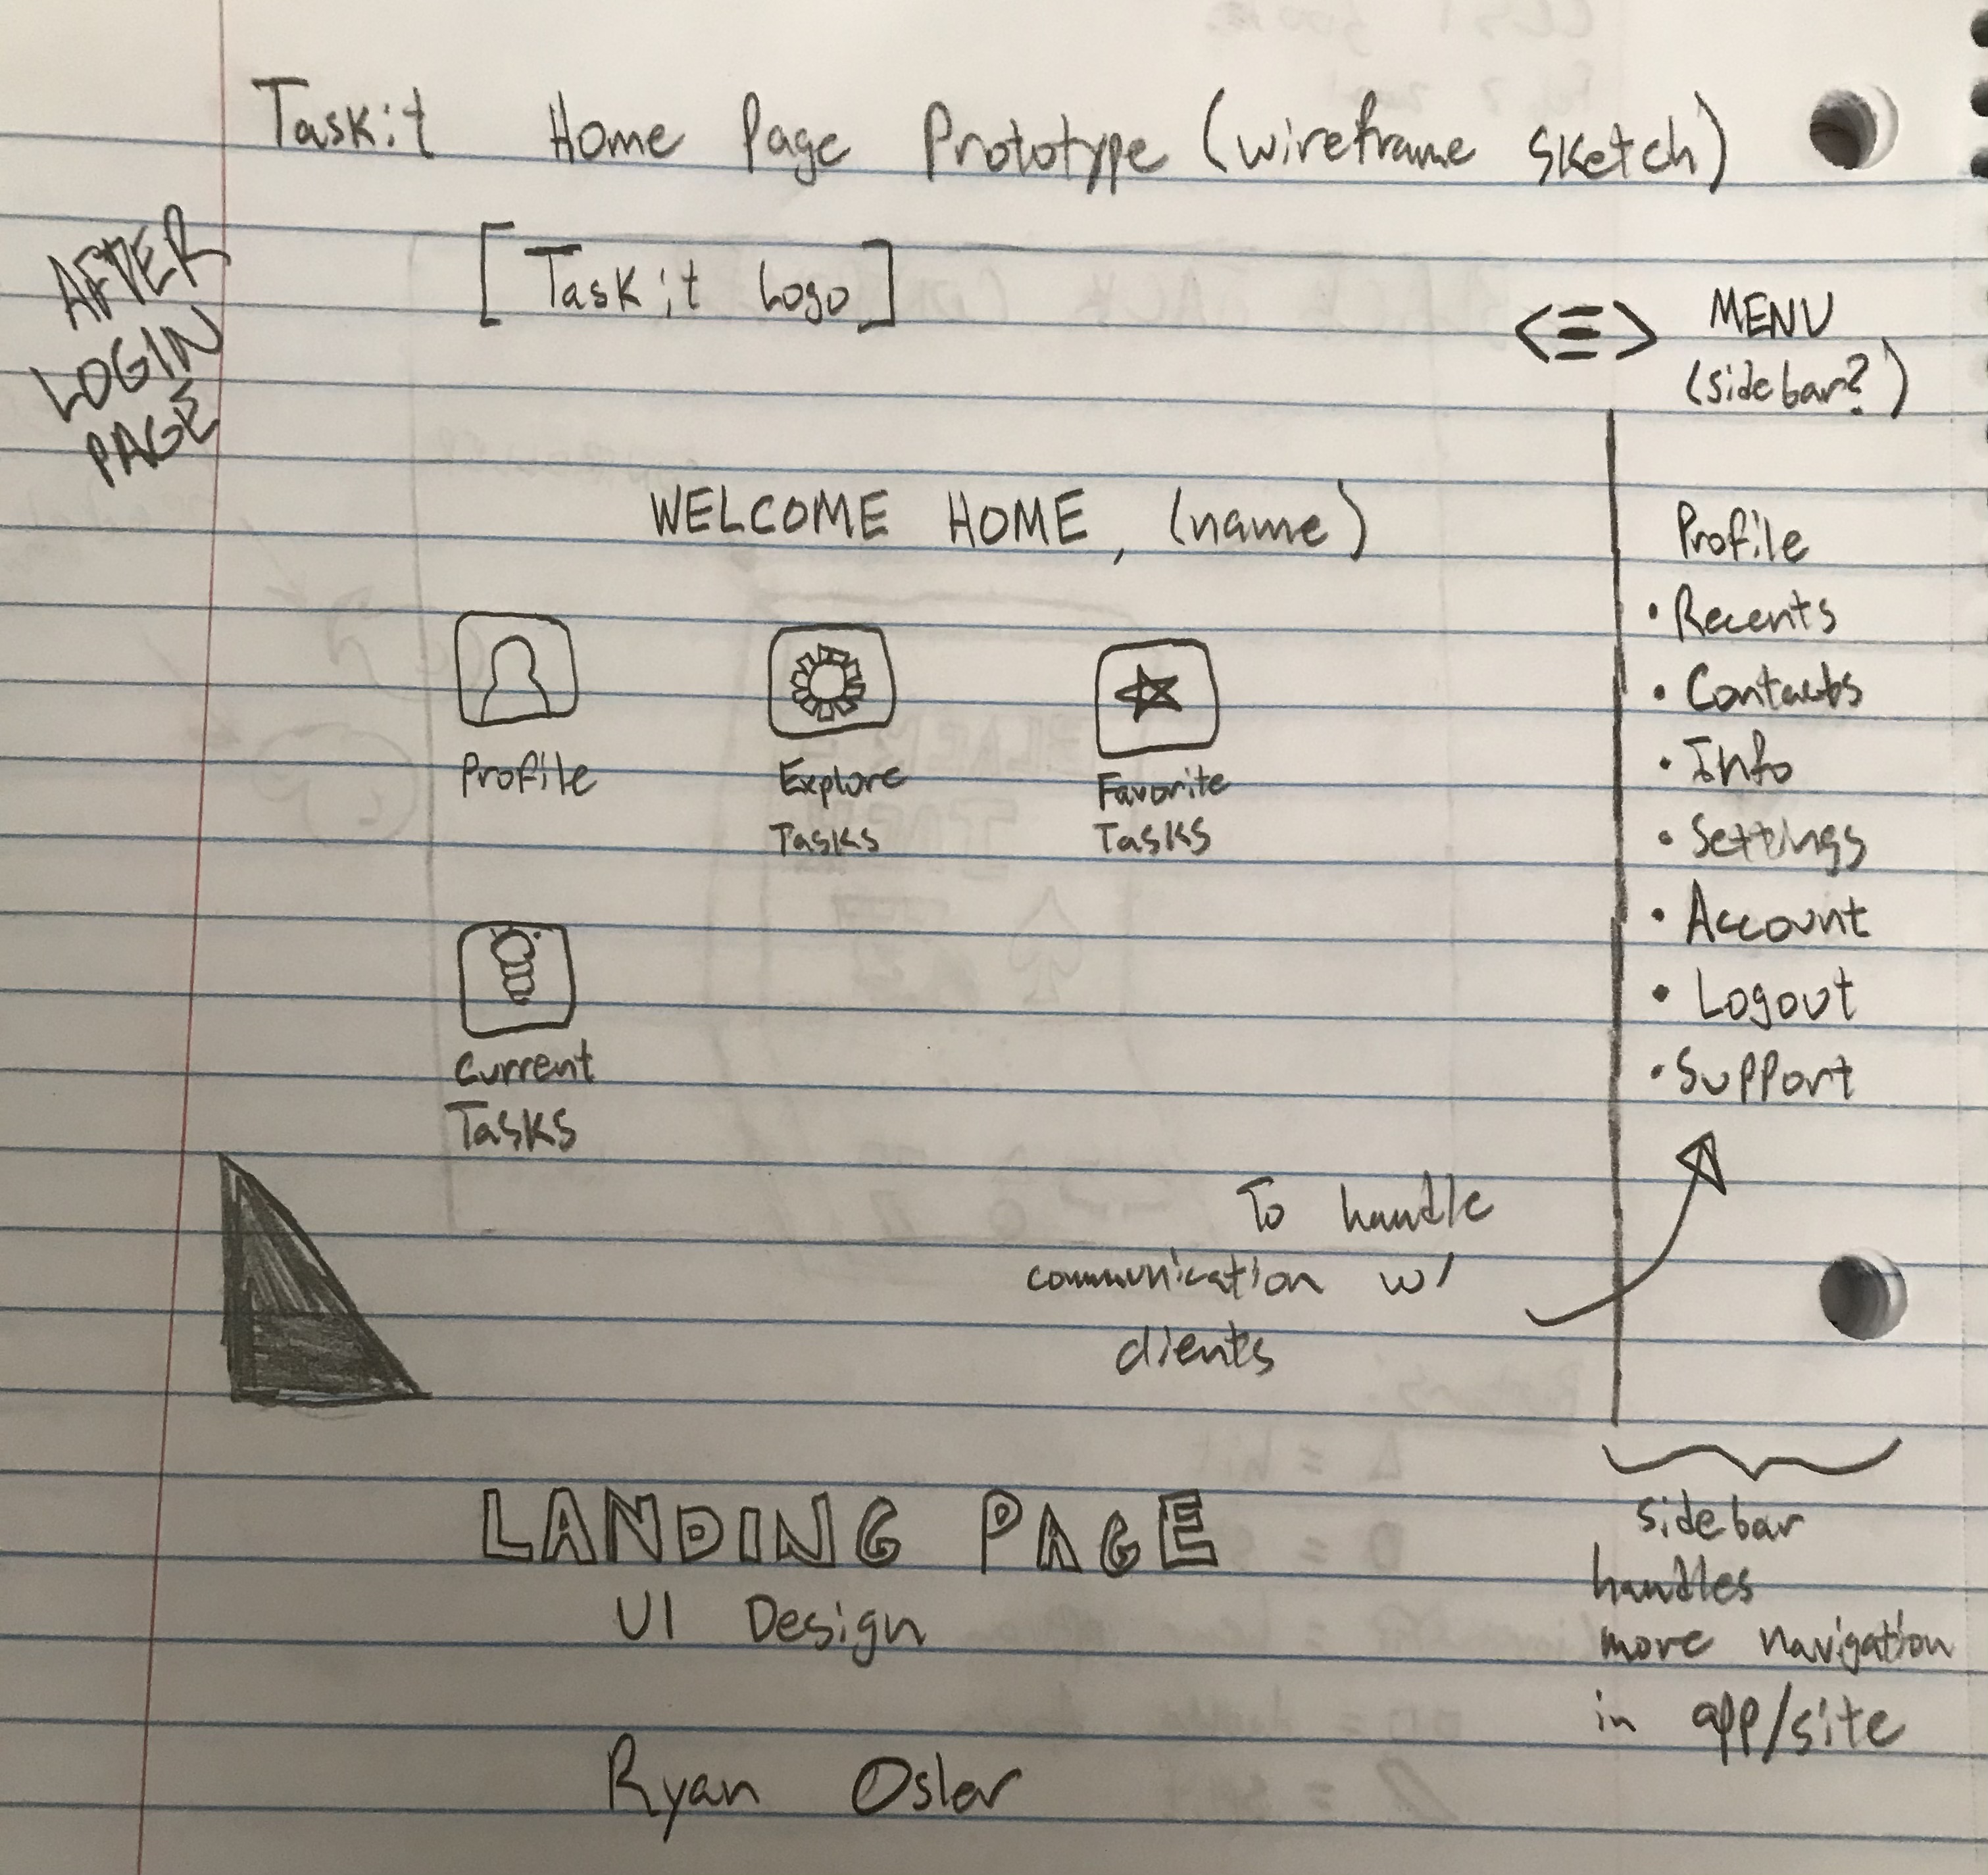 Taskit Home Page Prototype (wireframe sketch)
AFTER
LOGIN
PAGE
[Taskit Logo]
<≡> MENU
(sidebar?)
WELCOME HOME, (name)
Profile
Explore
Tasks
Favorite
Tasks
Current
Tasks
Profile
• Recents
• Contacts
• Info
• Settings
• Account
• Logout
• Support
To handle
communication w/
clients
LANDING PAGE
UI Design
Ryan Osler
sidebar
handles
more navigation
in app/site